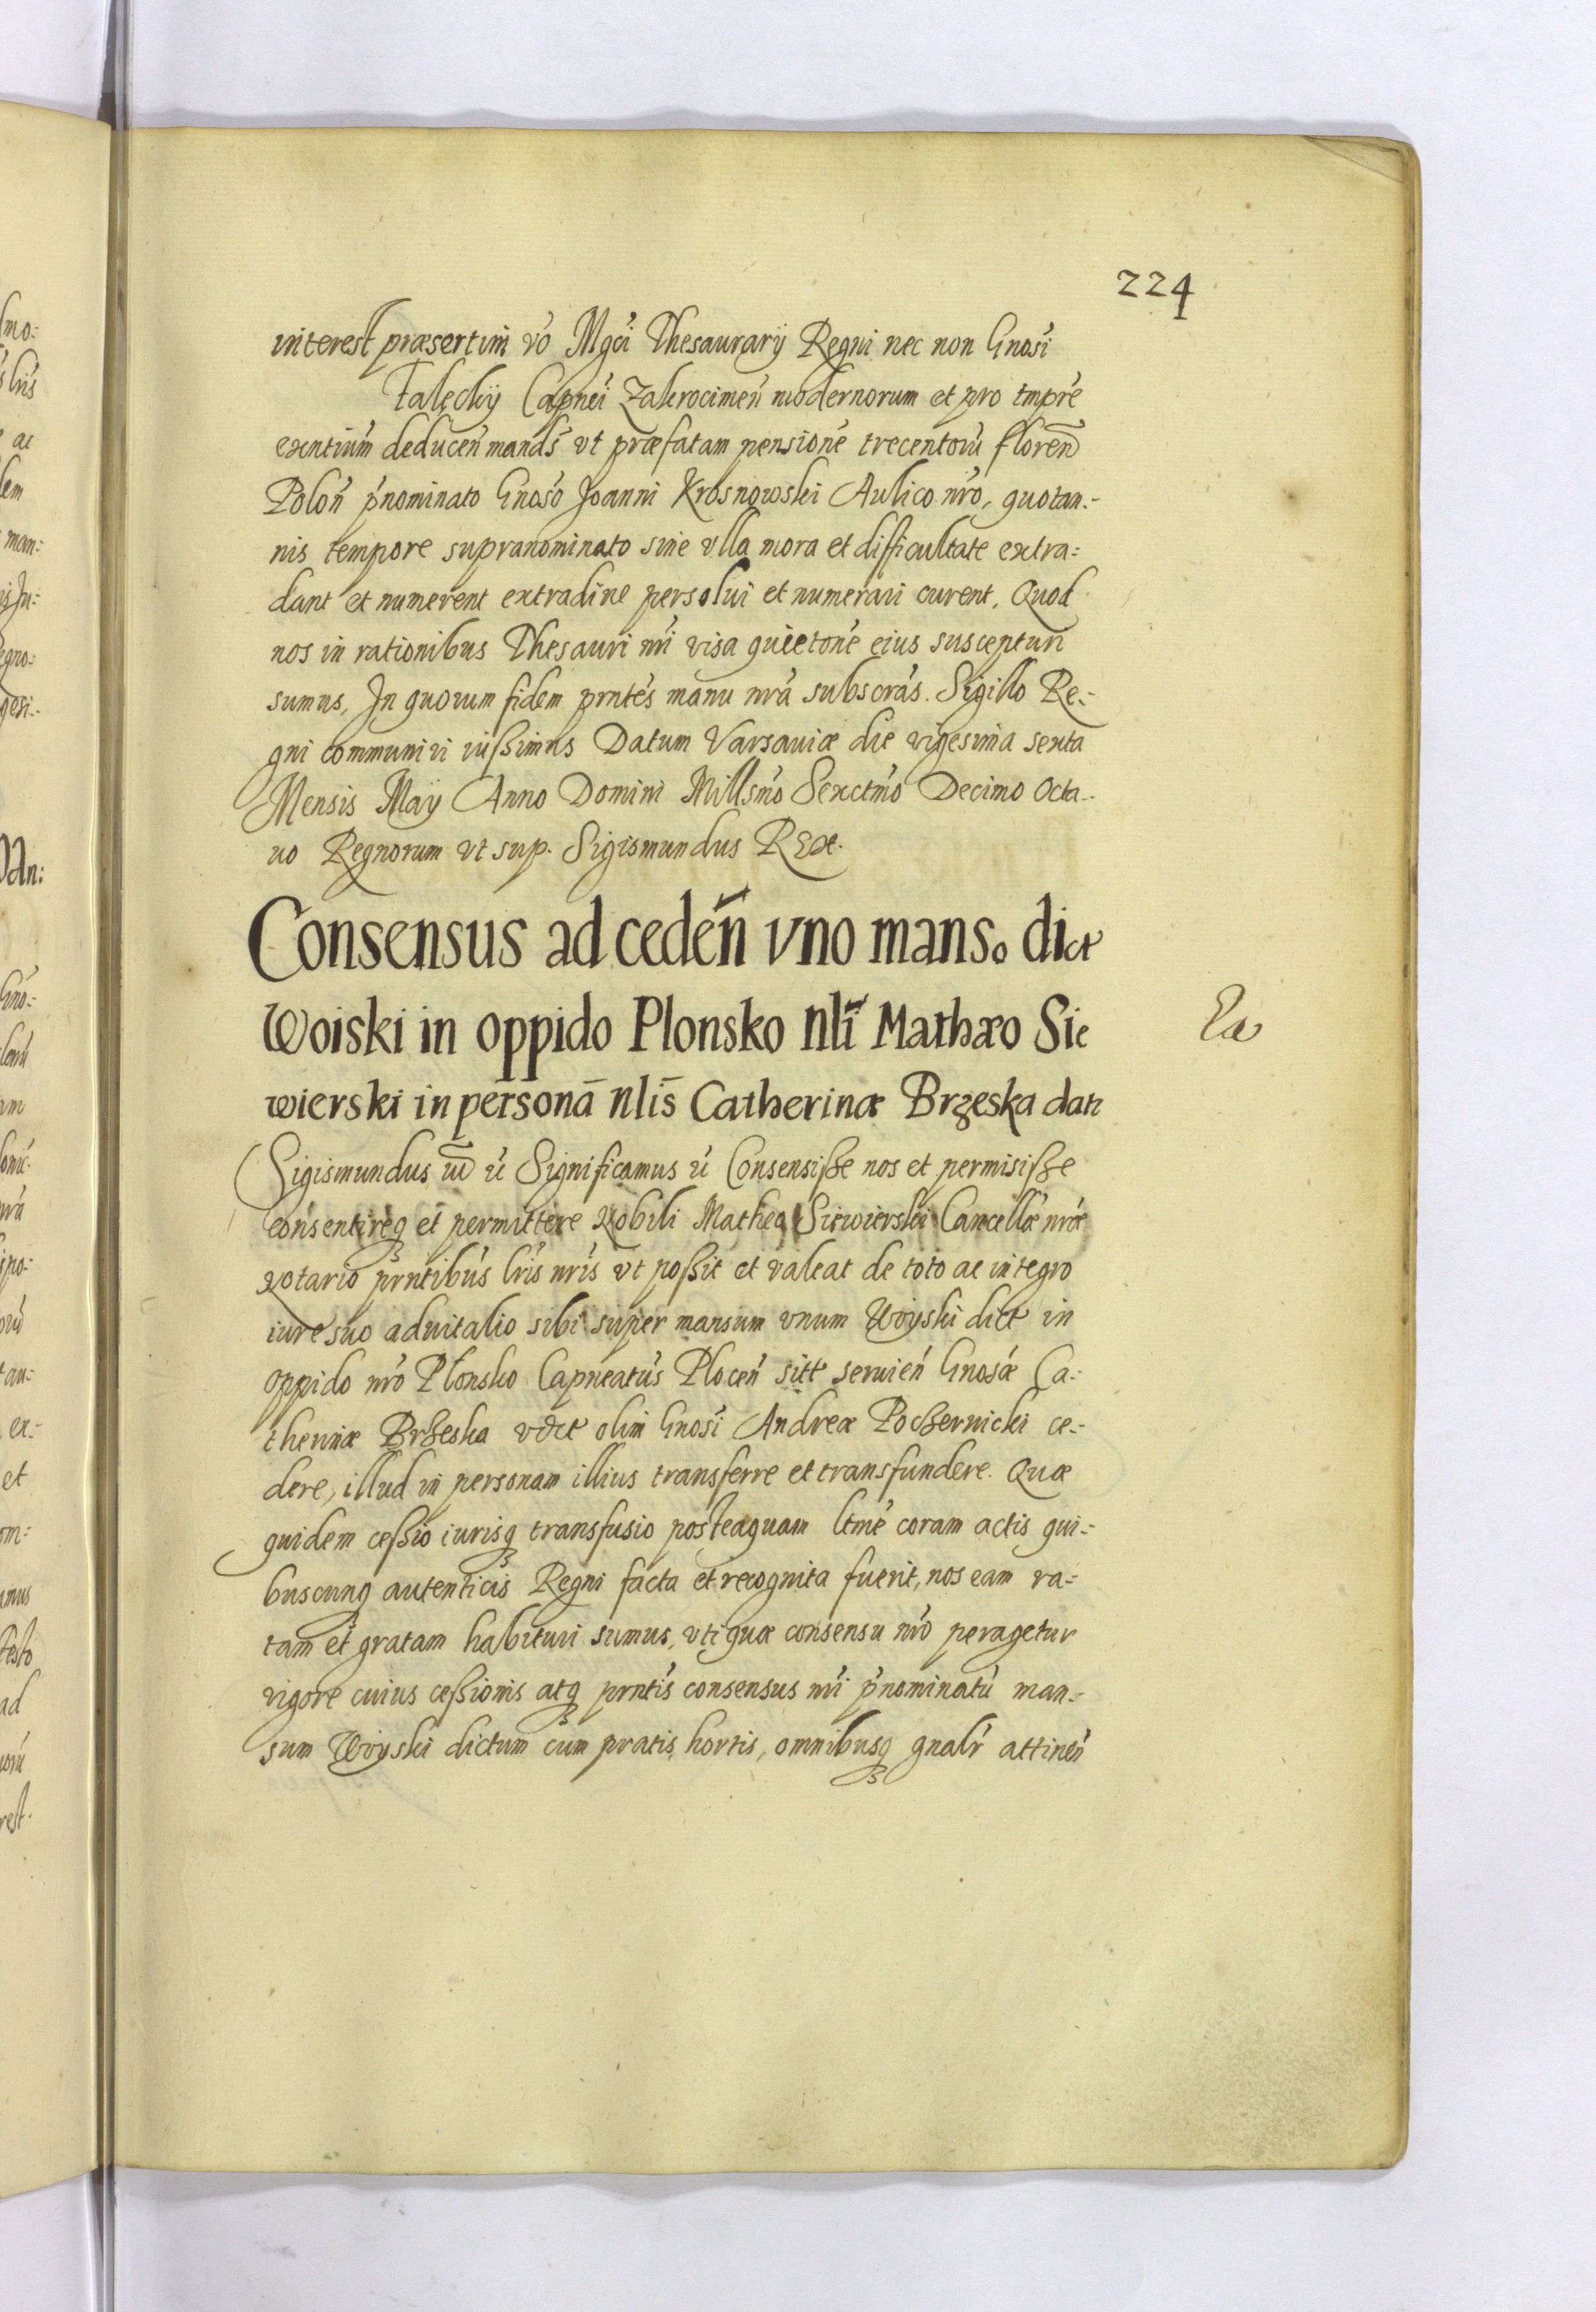 224
interest præsertim vo Mgci Thesaurarij Regni nec non Gnosi
Talęckij Capnei Zakrocimeñ modernorum et pro tmpre
exntium deducen mands vt præfatam pensione trecentoru floreñ
Poloñ pnominato Gnoso Joanni Krosnowski Aulico nro, quotan:-
nis tempore supranominato sine vlla mora et difficultate extra:
dant et numerent extradiue persolui et numerari curent. Quod
nos in rationibus Thesauri nri visa quietone eius suscepturi
sumus, In quorum fidem prntes manu nra subscras. Sigillo Re:-
gni communiri iußimus Datum Varsauiæ die vigesima sexta
Mensis Maij Anno Domini Millsmo Sexctmo Decimo Octa-
uo Regnorum vt sup. Sigismundus REx.
Consensus ad cedeñ vno manso dict
Woiski in oppido Plonsko nli Mathæo Sie
wierski in personā nlis Catherinæ Brzeska datz
Sigismundus iii ú Significamus ú Consensiße nos et permisiße
consentireq et permittere Nobili Matheo Siewierski Cancellæ nræ
Notario prntibus lris nris vt poßit et valeat de toto ac integro
iure suo aduitalio sibi super mansum vnum Woyski dict in
oppido nro Plonsko Capneatus Ploceñ sitt seruień Gnosæ Ca:-
therinæ Brzeska vdct olim Gnosi Andreæ Poczernicki ce:-
dere, illud in personam illius transferre et transfundere. Quæ
quidem ceßio iurisq transfusio posteaquam ltme coram actis qui:-
buscunq autenticis Regni facta et recognita fuerit, nos eam ra:
tam et gratam habituri sumus, vti quæ consensu nro peragetur
vigore cuius ceßionis atq prntis consensus nri pnominatu man:-
sum Woyski dictum cum pratis, hortis, omnibusq gnalr attineñ